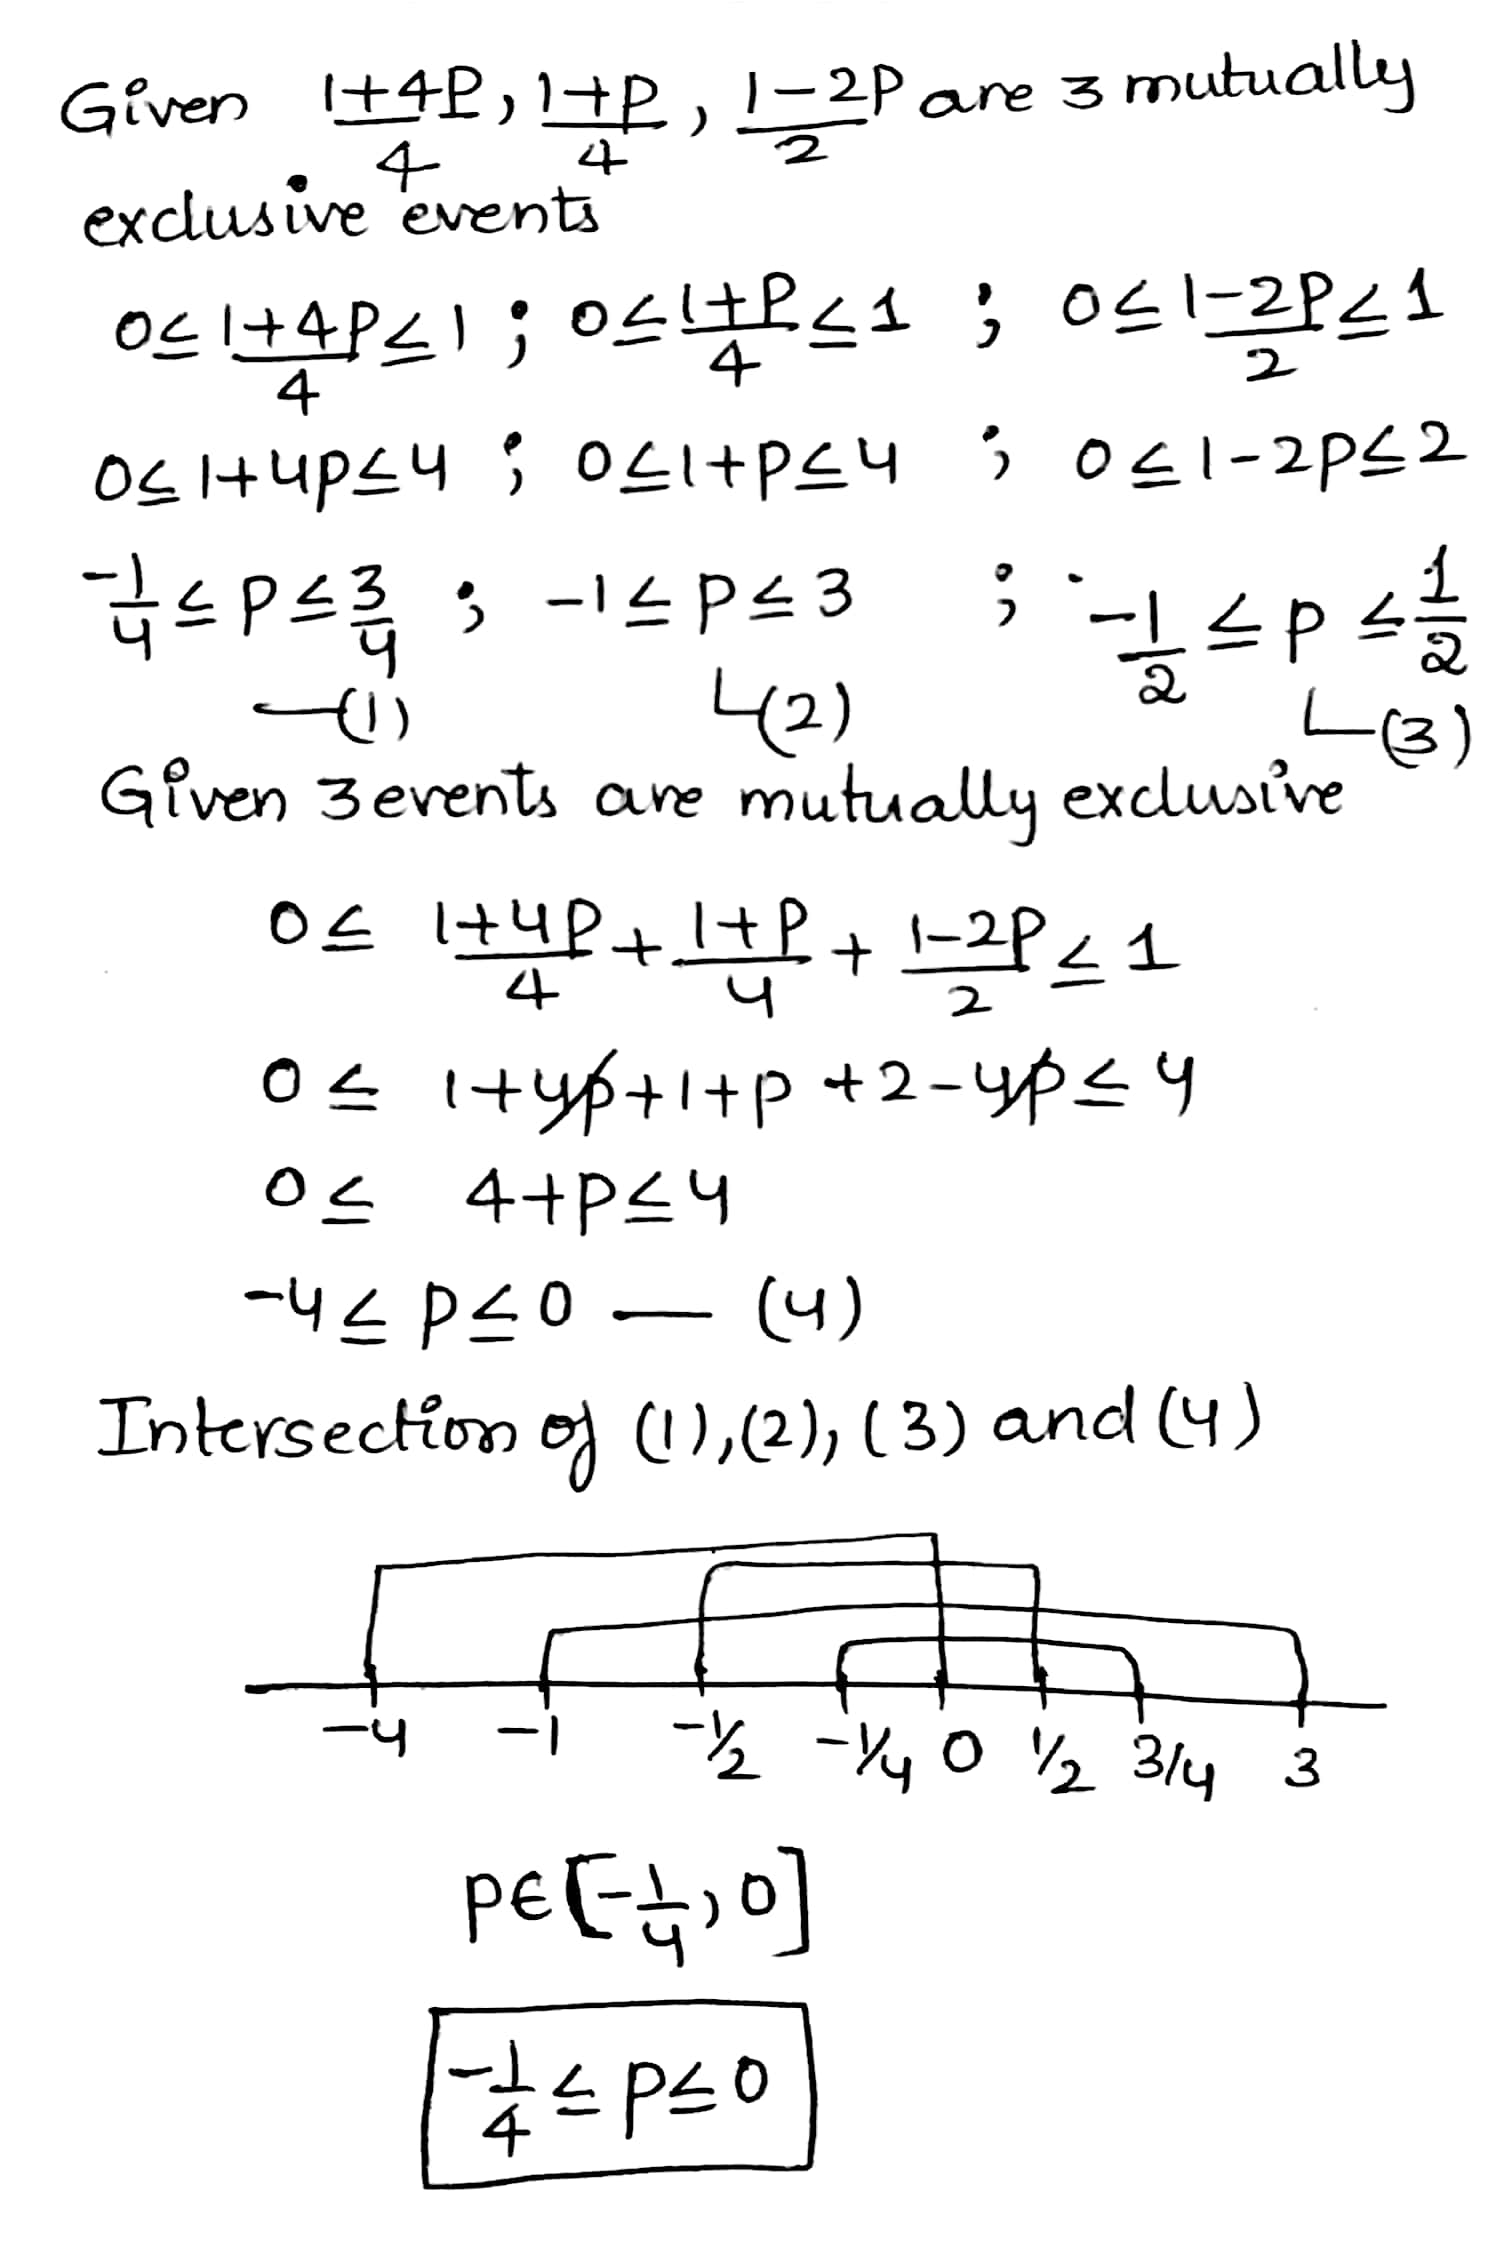 Given (1+4P)/4, (1+P)/4, (1-2P)/2 are 3 mutually
exclusive events
0≤ (1+4P)/4 ≤1 ; 0≤ (1+P)/4 ≤1 ; 0≤ (1-2P)/2 ≤1
0≤1+4p≤4 ; 0≤1+p≤4 ; 0≤1-2p≤2
-1/4 ≤ p ≤ 3/4 ; -1≤ p ≤3 ; -1/2 ≤ p ≤ 1/2
—(1) (2) (3)
Given 3 events are mutually exclusive
0≤ (1+4P)/4 + (1+P)/4 + (1-2P)/2 ≤ 1
0≤ 1+4p+1+p+2-4p ≤ 4
0≤ 4+p≤4
-4≤ p≤0 — (4)
Intersection of (1),(2),(3) and (4)
-4 -1 -1/2 -1/4 0 1/2 3/4 3
p∈[-1/4, 0]
-1/4 ≤ p≤0